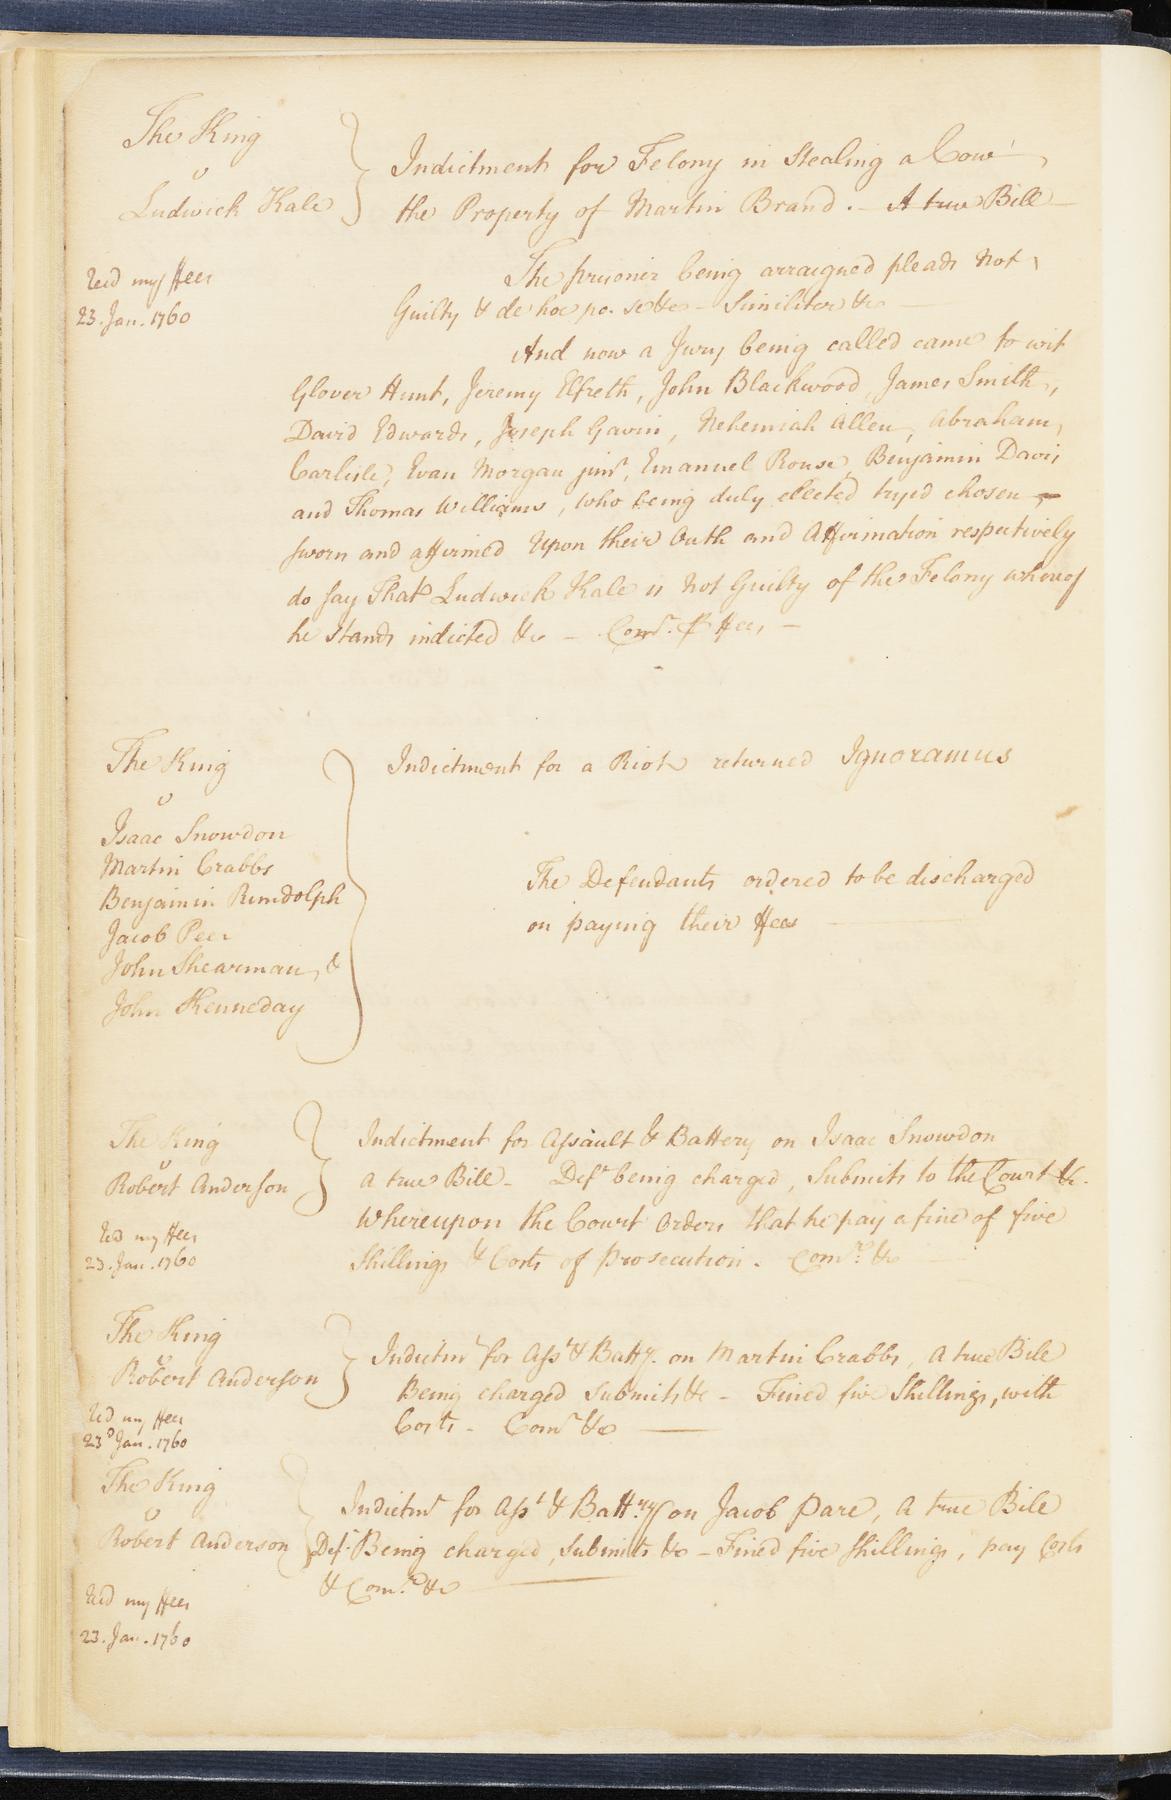 The King
v
Ludwick Kale
Indictment for Felony in Stealing a Cow
the Property of Martin Brand. - A true Bill
Rec'd my ffees
23. Jan. 1760
The prisoner being arraigned pleads Not
Guilty & de hoc po. se &c - Similiter &c
And now a Jury being called came to wit
Glover Hunt, Jeremy Elfreth, John Blackwood, James Smith,
David Edwards, Joseph Gavin, Nehemiah Allen, Abraham
Carlisle, Evan Morgan junr, Emanuel Rouse, Benjamin Davis
and Thomas Williams, who being duly elected tryed chosen
sworn and affirmed Upon their Oath and Affirmation respectively
do say That Ludwick Kale is Not Guilty of the Felony whereof
he stands indicted &c - Comr. P ffees -
The King
v
Isaac Snowdon
Martin Crabbs
Benjamin Rundolph
Jacob Peer
John Shearman, &
John Kenneday
Indictment for a Riot returned Ignoramus
The Defendants ordered to be discharged
on paying their ffees
The King
v
Robert Anderson
Indictment for Assault & Battery on Isaac Snowdon
a true Bill - Deft being charged, Submits to the Court &c.
Whereupon the Court Orders that he pay a fine of five
Shillings & Costs of Prosecution. Comr. &c
Rec'd my ffees
23. Jan. 1760
The King
v
Robert Anderson
Indictmt for Asst & Batty. on Martin Crabbs, A true Bill
Being charged submits &c - Fined five Shillings, with
Costs - Comr &c
Rec'd my ffees
23d Jan. 1760
The King
v
Robert Anderson
Indictmt for Asst & Battry on Jacob Pare, A true Bill
Deft. Being charged, submits &c - Fined five Shillings, pay Costs
& Comr. &c
Rec'd my ffees
23. Jan. 1760